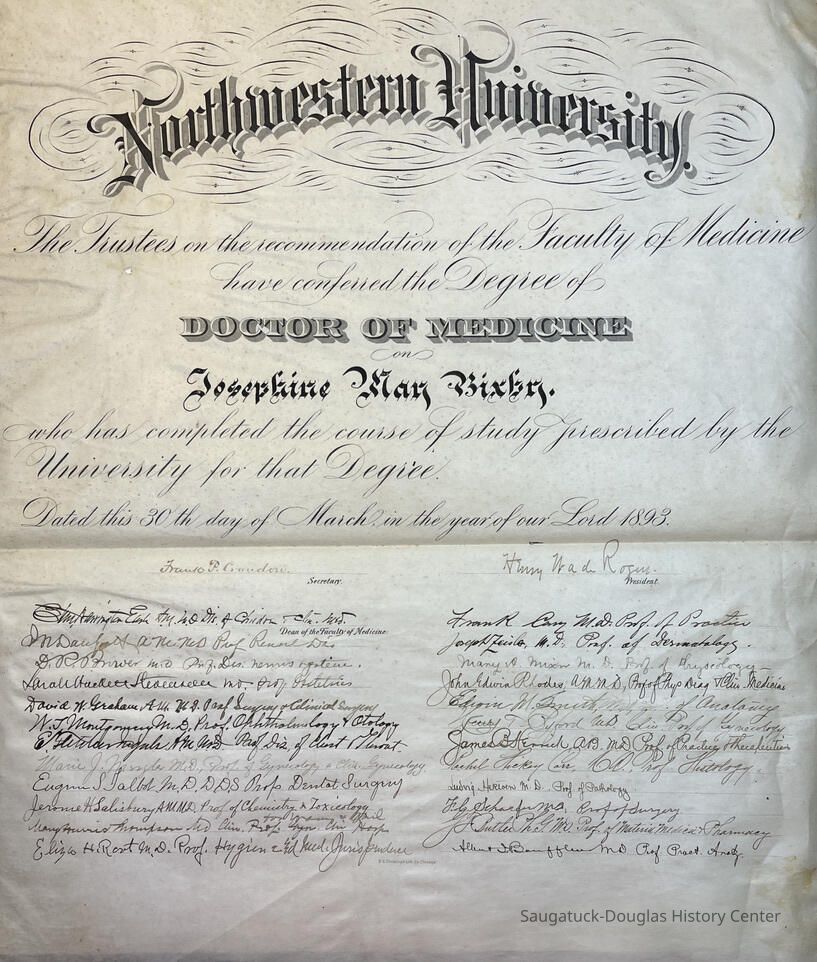 Northwestern University.
The Trustees on the recommendation of the Faculty of Medicine
have conferred the Degree of
DOCTOR OF MEDICINE
on
Josephine May Bixby.
who has completed the course of study prescribed by the
University for that Degree.
Dated this 30th day of March in the year of our Lord 1893.
Secretary.
Henry Wade Rogers.
President.
Dean of the Faculty of Medicine
M.D. Prof. Renal Dis.
Sarah Hackett Stevenson M.D. Prof Obstetrics
David W. Graham A.M. M.D. Prof Surgery & Clinical Surgery
W. T. Montgomery M.D. Prof. Ophthalmology & Otology
E. Fletcher Ingals A.M. M.D. Prof Dis. of Chest & Throat
Marie J. Mergler M.D. Prof of Gynecology & Clin. Gynecology
Eugene S. Talbot M.D., D.D.S Profs Dental Surgery
Jerome H Salisbury A.M. M.D. Prof of Chemistry & Toxicology
Mary Harris Thompson MD Clin. Prof. Gyn.
Eliza H. Root M.D. Prof. Hygiene & Med. Jurisprudence
Frank Cary M.D. Prof. of Practice
Joseph Zeisler, M.D. Prof. of Dermatology.
Mary A. Mixer M.D. Prof of Physiology
John Edwin Rhodes, A.M. M.D., Prof of Phys Diag & Clin. Medicine
Edwin M. Smith, of Anatomy
Prof Gynecology
James B Herrick, A.B. M.D Prof of Practice & Therapeutics
M.D. Prof. Histology.
Ludvig Hektoen M.D. Prof. of Pathology
M.D., Prof of Surgery
Prof. of Materia Medica & Pharmacy
M.D. Prof Pract. Anat.
Saugatuck-Douglas History Center